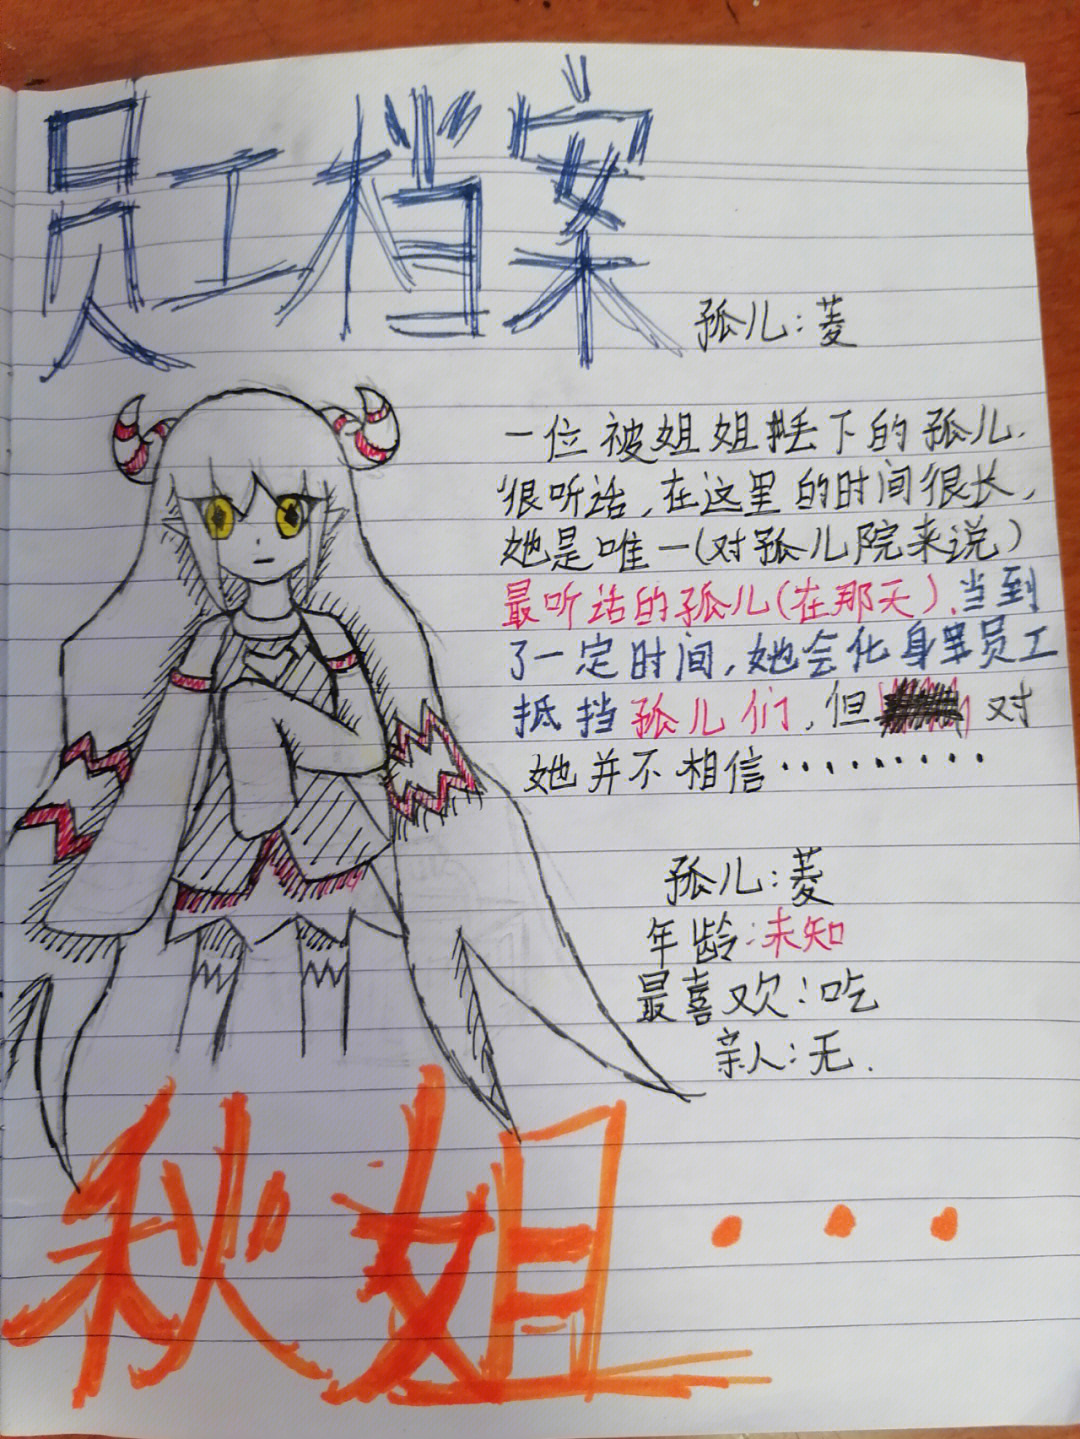 员工档案
孤儿：菱
一位被姐姐丢下的孤儿.
很听话，在这里的时间很长，
她是唯一（对孤儿院来说）
最听话的孤儿（在那天）.当到
了一定时间，她会化身员工
抵挡孤儿们，但 对
她并不相信·········
孤儿：菱
年龄：未知
最喜欢：吃
亲人：无.
秋姐···